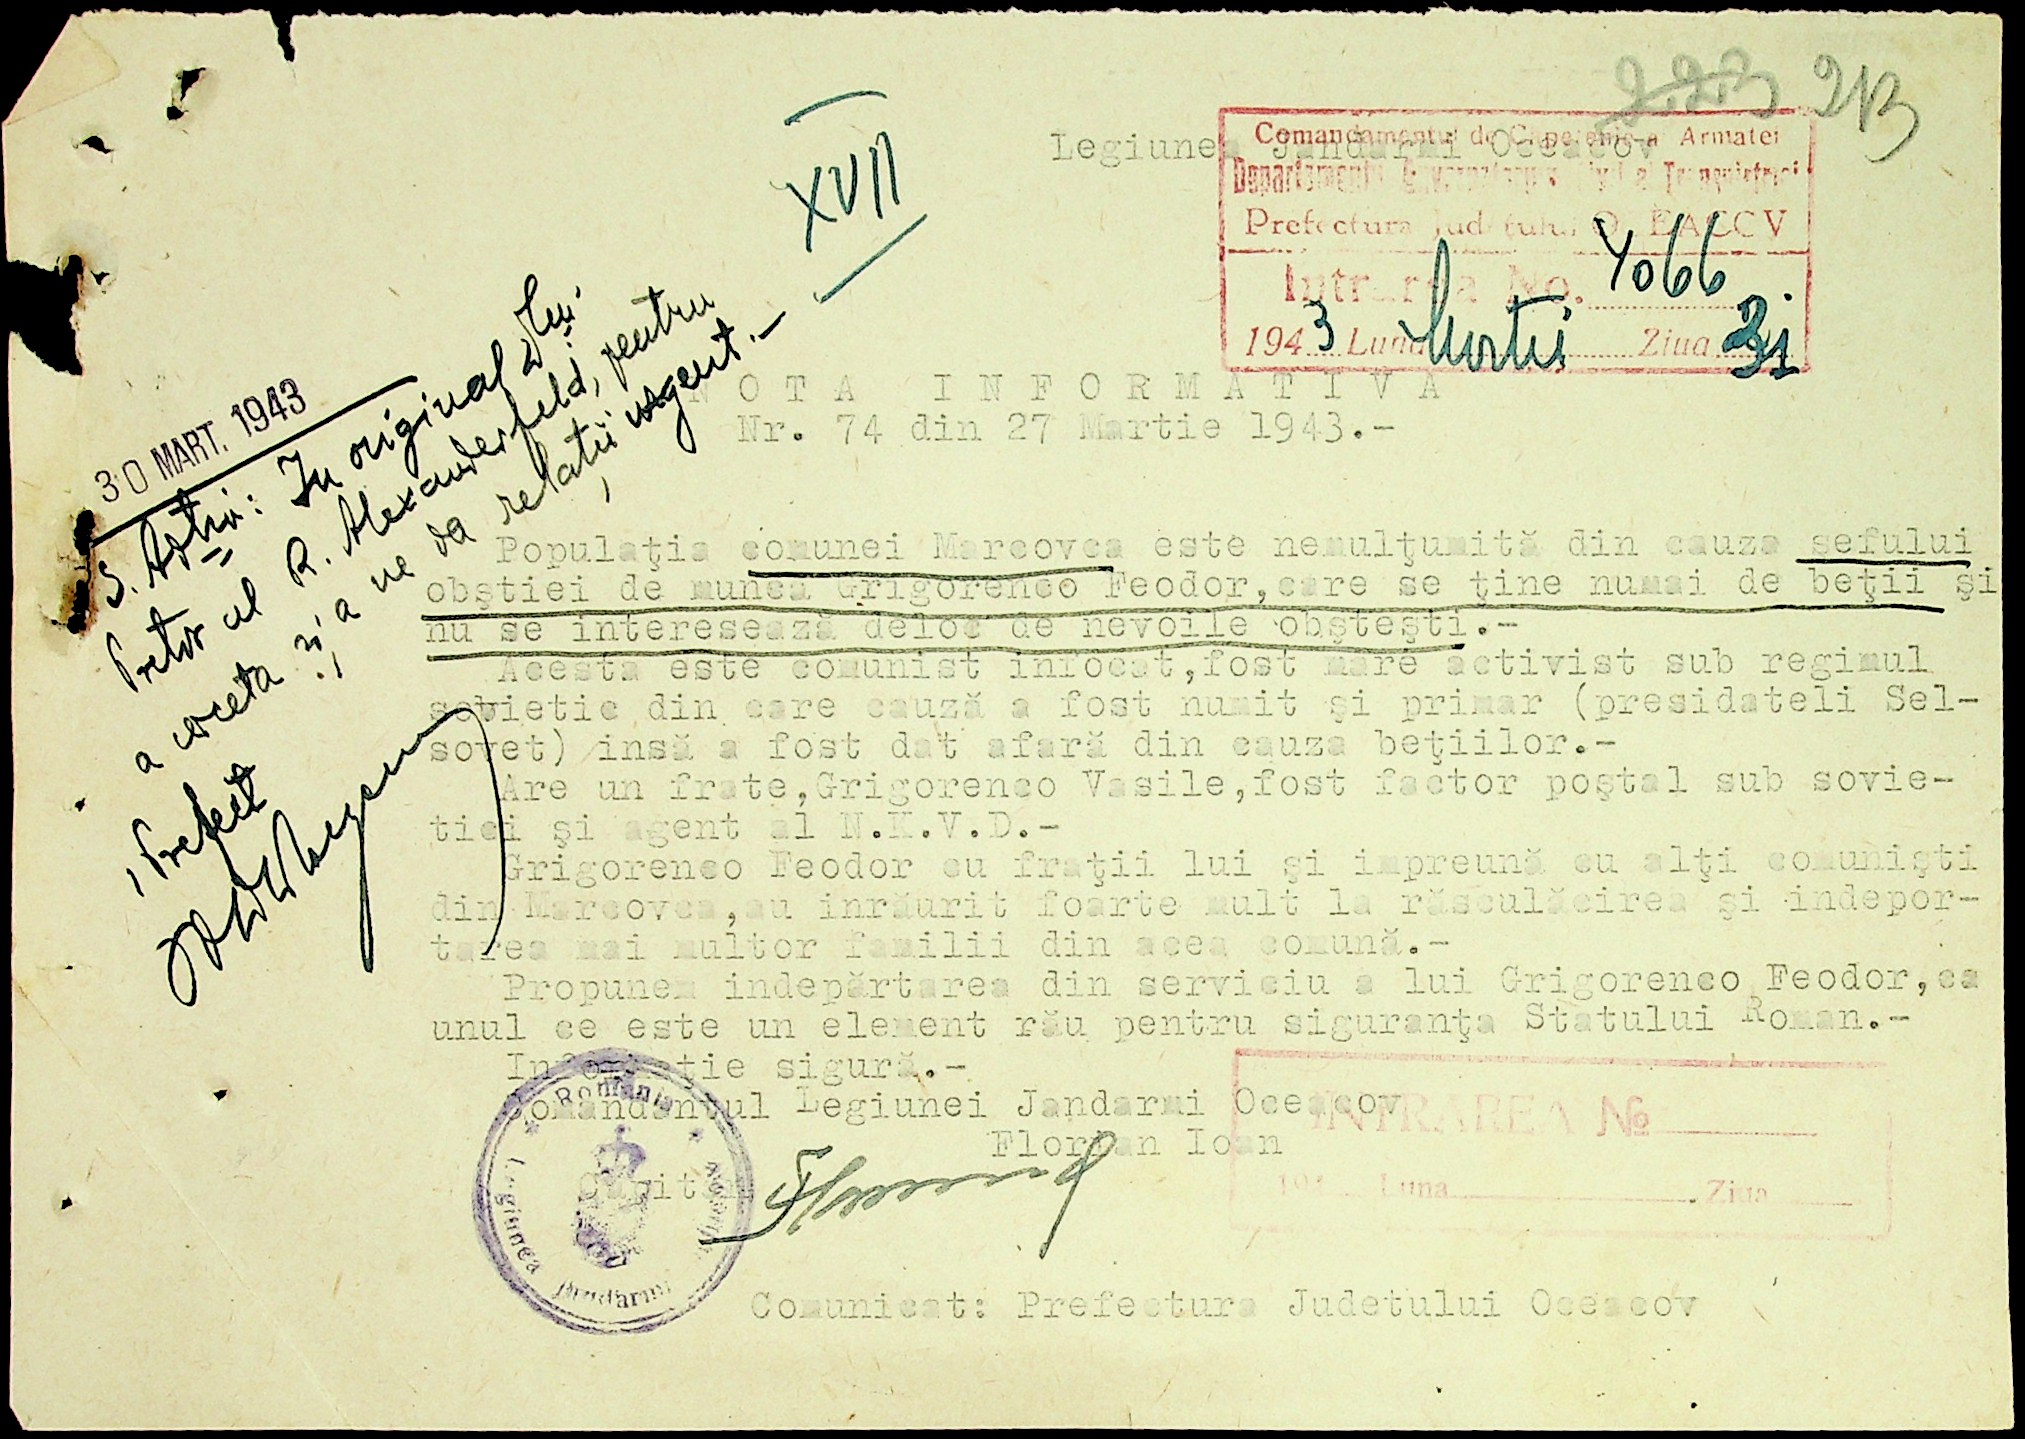 223 213
XVII
Legiunea Jandarmi Oceacov
Comandamentul de Capetenie a Armatei
Prefectura Judetului OCEACOV
Intrarea No. 4066
1943 Luna Martie Ziua 31
30 MART. 1943
NOTA INFORMATIVA
Nr. 74 din 27 Martie 1943.-
In original Dlui
Pretor al R. Alexanderfeld, pentru
a cerceta și a ne da relatii urgent.-
Prefect
Populaţia comunei Marcovca este nemulţumită din cauza sefului
obştiei de munca Grigorenco Feodor,care se ţine numai de beţii şi
nu se interesează deloc de nevoile obşteşti.-
Acesta este comunist infocat,fost mare activist sub regimul
sovietic din care cauză a fost numit şi primar (presidateli Sel-
sovet) insă a fost dat afară din cauza beţiilor.-
Are un frate,Grigorenco Vasile,fost factor poştal sub sovie-
tici şi agent al N.K.V.D.-
Grigorenco Feodor cu fraţii lui şi impreună cu alţi comunişti
din Marcovca,au inrăurit foarte mult la răsculăcirea şi indepor-
tarea mai multor familii din acea comună.-
Propunem indepărtarea din serviciu a lui Grigorenco Feodor,ca
unul ce este un element rău pentru siguranţa Statului Roman.-
Informaţie sigură.-
Comandantul Legiunei Jandarmi Oceacov
Florian Ioan
Capitan
România
Legiunea Jandarmi
INTRAREA №
194 Luna Ziua
Comunicat: Prefectura Judetului Oceacov